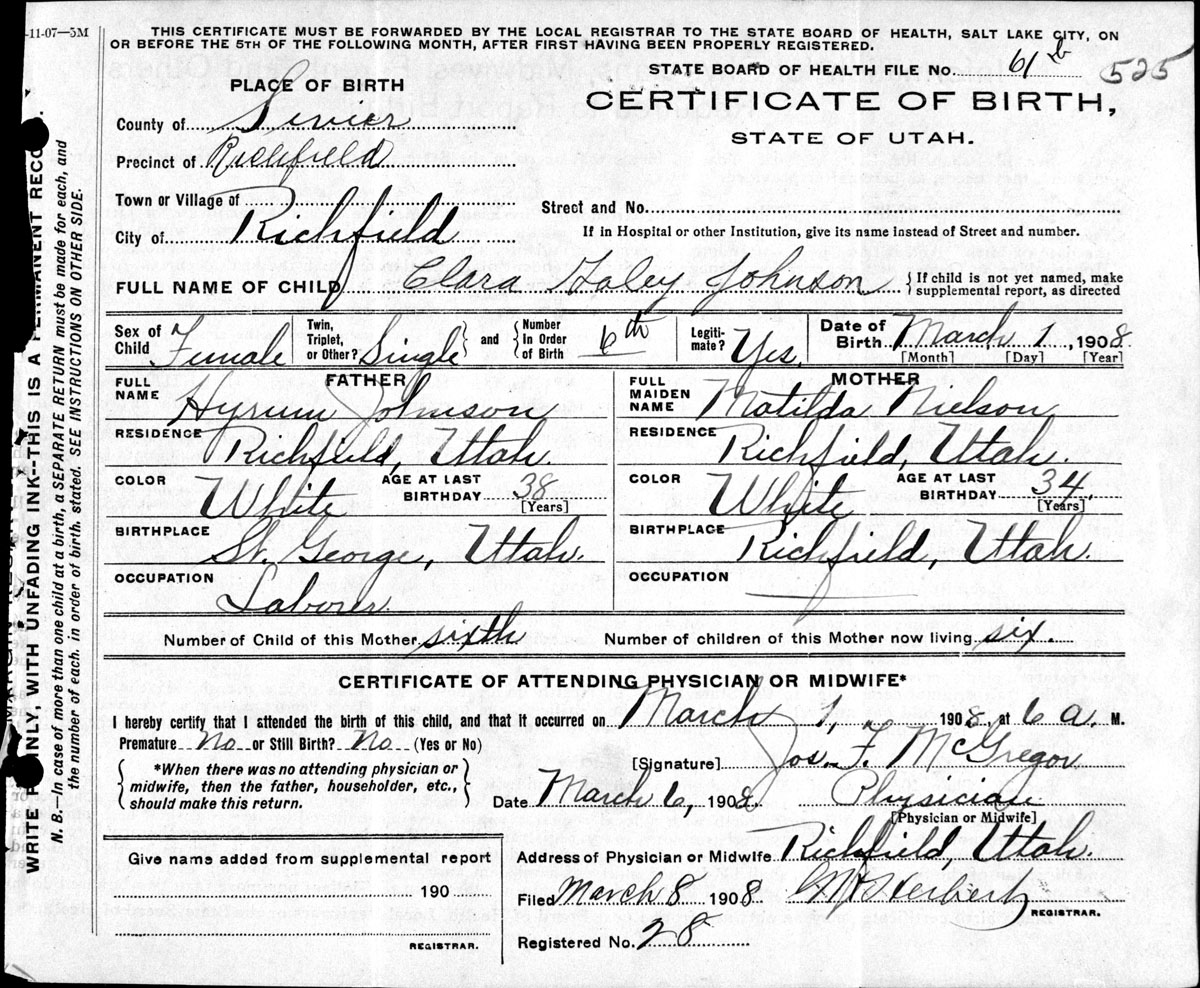 -11-07—5M
THIS CERTIFICATE MUST BE FORWARDED BY THE LOCAL REGISTRAR TO THE STATE BOARD OF HEALTH, SALT LAKE CITY, ON
OR BEFORE THE 5TH OF THE FOLLOWING MONTH, AFTER FIRST HAVING BEEN PROPERLY REGISTERED.
STATE BOARD OF HEALTH FILE No. 61 b 525
PLACE OF BIRTH
CERTIFICATE OF BIRTH,
STATE OF UTAH.
County of Sevier
Precinct of Richfield
Town or Village of
Street and No.
City of Richfield
If in Hospital or other Institution, give its name instead of Street and number.
FULL NAME OF CHILD Clara Haley Johnson { If child is not yet named, make
supplemental report, as directed
Sex of Child Female
Twin, Triplet, or Other? Single } and { Number In Order of Birth 6th
Legiti-mate? Yes.
Date of Birth March 1, 1908
[Month] [Day] [Year]
FATHER
FULL NAME Hyrum Johnson
RESIDENCE Richfield, Utah.
COLOR White AGE AT LAST BIRTHDAY 38
[Years]
BIRTHPLACE St. George, Utah.
OCCUPATION Laborer.
MOTHER
FULL MAIDEN NAME Matilda Nielson
RESIDENCE Richfield, Utah.
COLOR White AGE AT LAST BIRTHDAY 34.
[Years]
BIRTHPLACE Richfield, Utah.
OCCUPATION
Number of Child of this Mother sixth Number of children of this Mother now living six.
CERTIFICATE OF ATTENDING PHYSICIAN OR MIDWIFE*
I hereby certify that I attended the birth of this child, and that it occurred on March 1, 1908, at 6 a. M.
Premature No or Still Birth? No (Yes or No)
{ *When there was no attending physician or
midwife, then the father, householder, etc.,
should make this return. }
[Signature] Jos. F. McGregor
Date March 6, 1908 Physician
[Physician or Midwife]
Address of Physician or Midwife Richfield, Utah.
Give name added from supplemental report
190
REGISTRAR.
Filed March 8 1908 Herbert
REGISTRAR.
Registered No. 28
WRITE PLAINLY, WITH UNFADING INK--THIS IS A PERMANENT RECORD.
N. B.—In case of more than one child at a birth, a SEPARATE RETURN must be made for each, and
the number of each, in order of birth, stated. SEE INSTRUCTIONS ON OTHER SIDE.